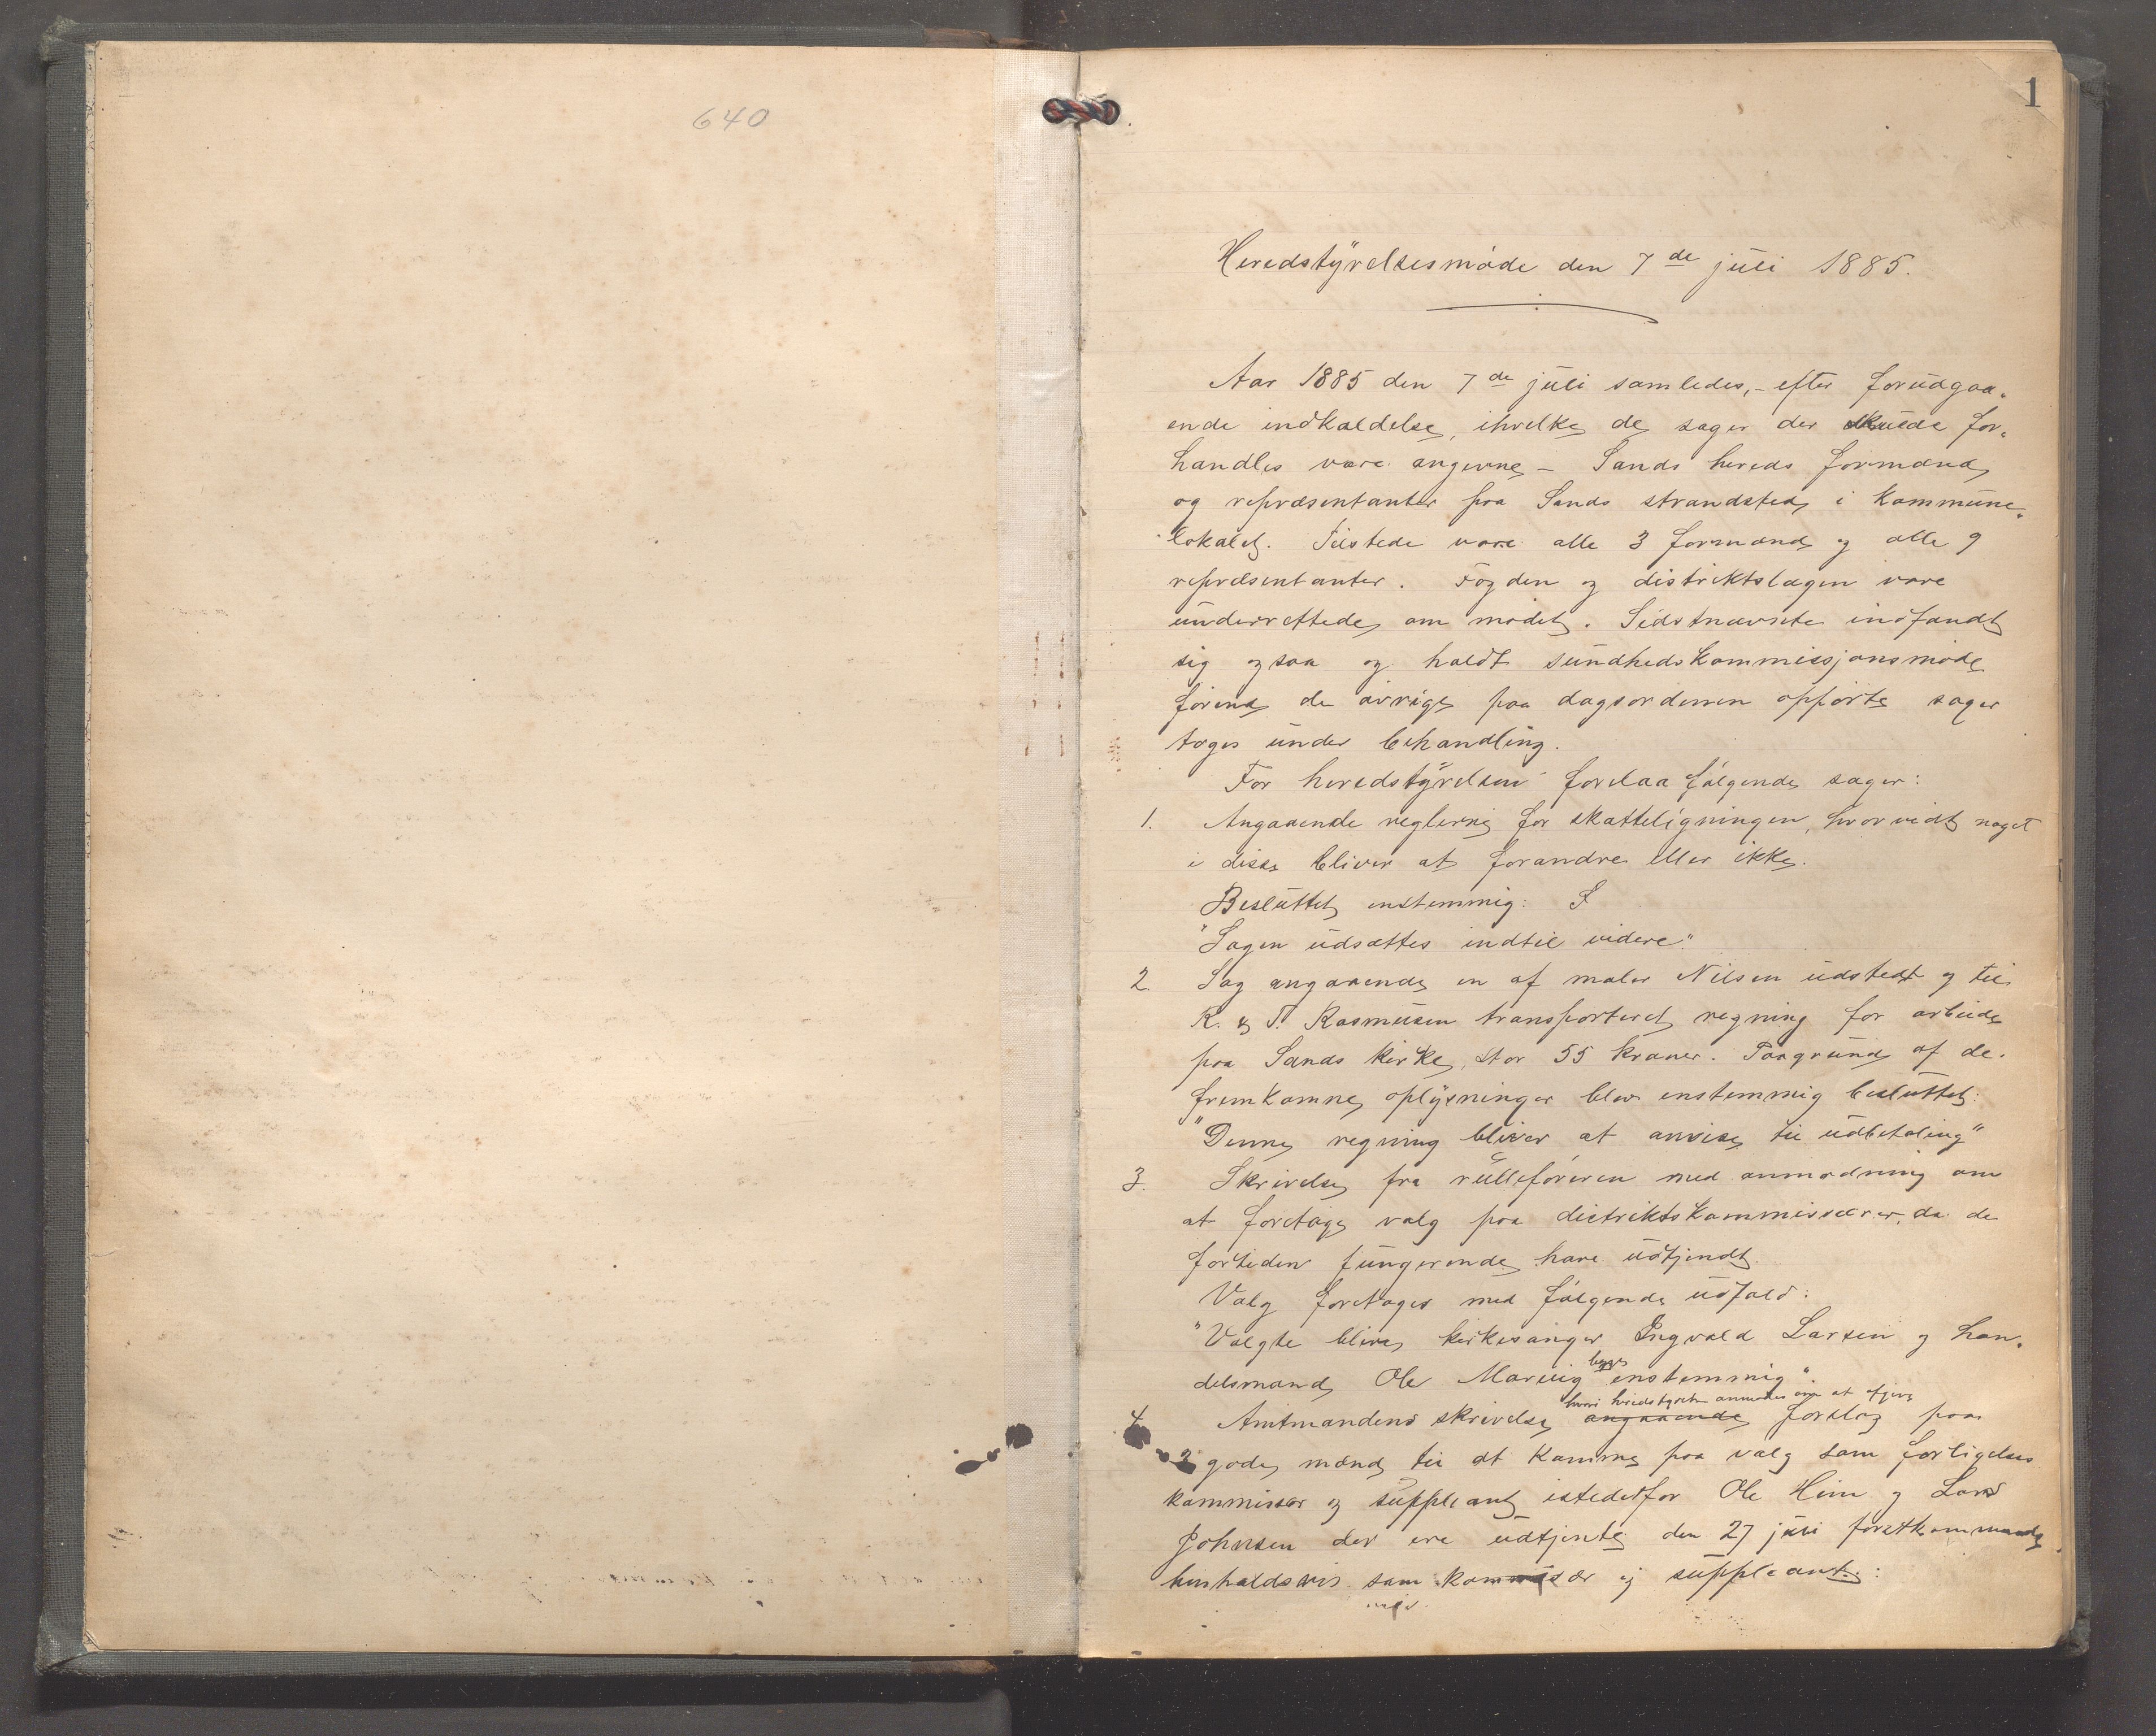 640
1
Heredstyrelsesmøde den 7de juli 1885.
Aar 1885 den 7de juli samledes, - efter forudgaa-
ende indkaldelse, ihvilke de sager der skulde for-
handles vare angivne - Sands hereds formænd
og repræsentanter paa Sands strandsted i kommune-
lokalet. Tilstede vare alle 3 formænd og alle 9
repræsentanter. Fogden og distriktslægen vare
underrettede om mødet. Sidstnævnte indfandt
sig ogsaa og holdt sundhedskommissjonsmøde
førend de øvrige paa dagsordenen opførte sager
toges under behandling.
For heredstyrelsen forelaa følgende sager:
1. Angaaende reglerne for skatteligningen, hvorvidt noget
i disse bliver at forandre eller ikke.
Besluttet enstemmig: S
"Sagen udsættes indtil videre."
2. Sag angaaende en af maler Nilsen udstedt og til
R. & T. Rasmusen transporteret regning for arbeide
paa Sands kirke, stor 55 kroner. Paagrund af de
fremkomne oplysninger blev enstemmig besluttet:
"Denne regning bliver at anvise til udbetaling"
3. Skrivelse fra rulleføreren med anmodning om
at foretage valg paa distriktskommissærer, da de
fortiden fungerende have udtjendt.
Valg foretages med følgende udfald:
"Valgte bleve kirkesanger Ingvald Larsen og han-
delsmand Ole Marvig begge enstemmig".
4. Amtmandens skrivelse angaaende hvori heredstyret anmodes om at afgive forslag paa
2 gode mænd til at komme paa valg som forligelses
kommissær og suppleant istedetfor Ole Hiim og Lars
Johnsen der ere udtjente den 27 juli førstkommende
henholdsvis som kommissær og suppleant: